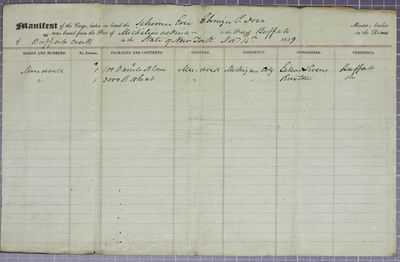 Manifest of the Cargo, taken on board the Schooner Erie Ebenezer P. Dorr Master, burden
tons, bound from the Port of Michilimackinac to the Port of Buffalo in the District
of Buffalo Creek in the State of New York Nov. 14th 1839
MARKS AND NUMBERS. No. Entries. PACKAGES AND CONTENTS. SHIPPERS. RESIDENCE. CONSIGNEES. RESIDENCE.
1 170 Barrels Flour Michigan City Buffalo
" 1 3000 B. Wheat " " Do